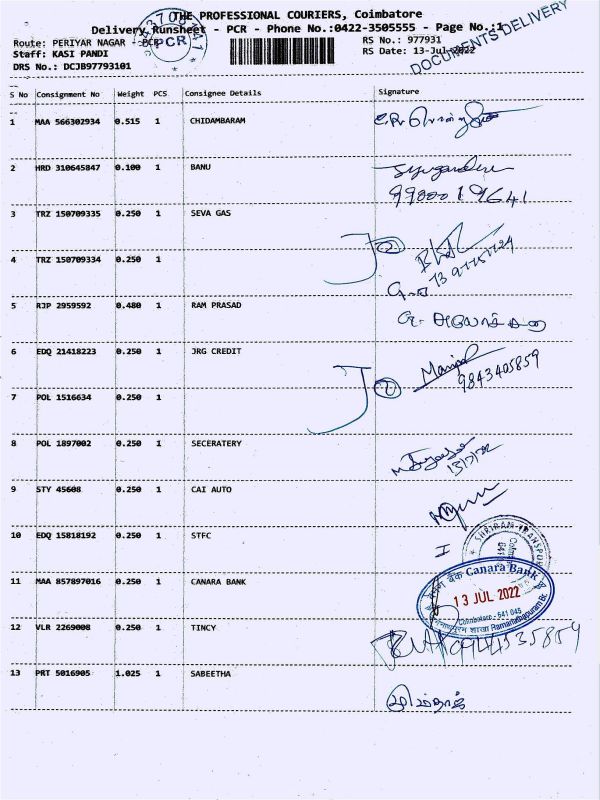 THE PROFESSIONAL COURIERS, Coimbatore
Delivery Runsheet - PCR - Phone No.:0422-3505555 - Page No.:1
Route: PERIYAR NAGAR - PCR
RS No.: 977931
Staff: KASI PANDI
RS Date: 13-Jul-2022
DRS No.: DCJB97793101
PCR
DOCUMENTS DELIVERY
S No Consignment No Weight PCS Consignee Details Signature
1 MAA 566302934 0.515 1 CHIDAMBARAM
2 HRD 310645847 0.100 1 BANU
3 TRZ 150709335 0.250 1 SEVA GAS
4 TRZ 150709334 0.250 1
5 RJP 2959592 0.480 1 RAM PRASAD
6 EDQ 21418223 0.250 1 JRG CREDIT
9843405859
7 POL 1516634 0.250 1
8 POL 1897002 0.250 1 SECERATERY
13/7/22
9 STY 45608 0.250 1 CAI AUTO
10 EDQ 15818192 0.250 1 STFC
SHRIRAM TRANSPORT
11 MAA 857897016 0.250 1 CANARA BANK
Canara Bank
13 JUL 2022
Coimbatore - 541 045
Ramanathapuram Br.
12 VLR 2269008 0.250 1 TINCY
13 PRT 5016905 1.025 1 SABEETHA